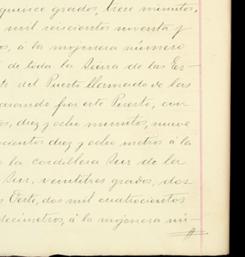 quince grados, trece minutos,
mil seiscientos noventa y
os, á la mojonera número
de toda la Sierra de las Es-
te del Puerto llamado de las
mirando frac este Puerto, con
os, diez y ocho minutos, nueve
cientos diez y ocho metros á la
la cordillera Sur de la
Sur, veintitres grados, dos
Oeste, dos mil cuatrocientos
decímetros, á la mojonera nú-